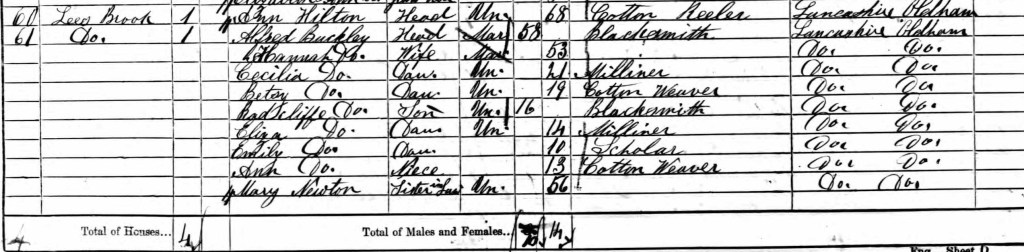 60 Lees Brook 1 Ann Hilton Head Un. 68 Cotton Reeler Lancashire Oldham
61 Do. 1 Alfred Buckley Head Mar 58 Blacksmith Lancashire Oldham
Hannah Do. Wife Mar 53 Do. Do.
Cecilia Do. Dau. Un. 21 Milliner Do. Do.
Betsy Do. Dau. Un. 19 Cotton Weaver Do. Do.
Radcliffe Do. Son Un. 16 Blacksmith Do. Do.
Eliza Do. Dau. Un. 14 Milliner Do. Do.
Emily Do. Dau. 10 Scholar Do. Do.
Ann Do. Niece 13 Cotton Weaver Do. Do.
Mary Newton Sister in Law Un. 56 Do. Do.
4 Total of Houses... 4 Total of Males and Females... 10 14
Eng. Sheet D.